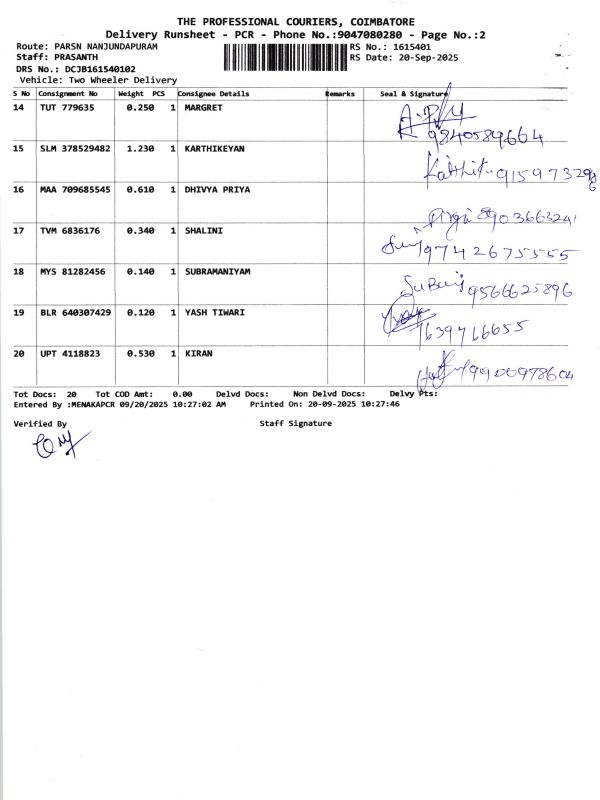 THE PROFESSIONAL COURIERS, COIMBATORE
Delivery Runsheet - PCR - Phone No.:9047080280 - Page No.:2
Route: PARSN NANJUNDAPURAM RS No.: 1615401
Staff: PRASANTH RS Date: 20-Sep-2025
DRS No.: DCJB161540102
Vehicle: Two Wheeler Delivery
S No Consignment No Weight PCS Consignee Details Remarks Seal & Signature
14 TUT 779635 0.250 1 MARGRET
9840589664
15 SLM 378529482 1.230 1 KARTHIKEYAN
16 MAA 709685545 0.610 1 DHIVYA PRIYA
8903663241
17 TVM 6836176 0.340 1 SHALINI
9742675555
18 MYS 81282456 0.140 1 SUBRAMANIYAM
9566625896
19 BLR 640307429 0.120 1 YASH TIWARI
1639766655
20 UPT 4118823 0.530 1 KIRAN
9900978604
Tot Docs: 20 Tot COD Amt: 0.00 Delvd Docs: Non Delvd Docs: Delvy Pts:
Entered By :MENAKAPCR 09/20/2025 10:27:02 AM Printed On: 20-09-2025 10:27:46
Verified By Staff Signature